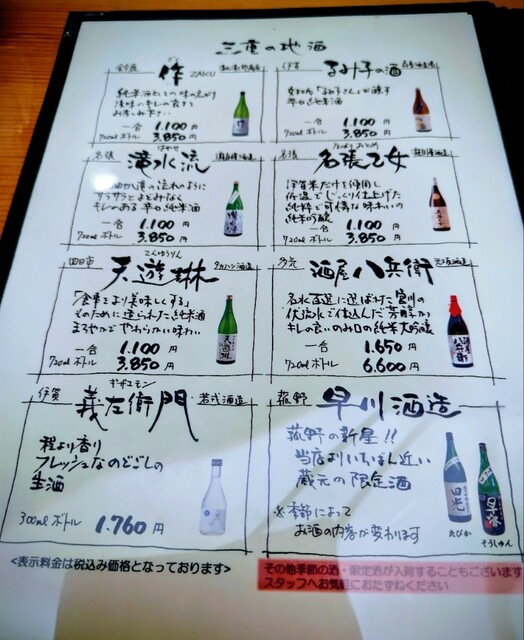 三重の地酒
鈴鹿 作 ZAKU
純米酒としての味の広がり
後味のキレの良さを
お楽しみ下さい
一合 1.100 円
720mlボトル 3.850 円
伊賀 るみ子の酒
女杜氏「るみ子さん」が醸す
辛口純米酒
一合 1.100 円
720mlボトル 3.850 円
はやせ
名張 滝水流
サラサラとよどみなく
キレのある辛口純米酒
一合 1.100 円
720mlボトル 3.850 円
なばり おとめ
名張 名張乙女
伊賀米だけを使用し
低温でじっくり仕上げた
純粋で可憐な味わいの
純米吟醸
一合 1.100 円
720mlボトル 3.850 円
てんゆうりん
四日市 天遊琳 タカハシ酒造
「食事をより美味しくする」
ために造られた純米酒
まろやかでやわらかい味わい
一合 1.100 円
720mlボトル 3.850 円
多気 酒屋八兵衛 元坂酒造
名水百選に選ばれた宮川の
伏流水で仕込んだ芳醇かつ
キレの良いのみ口の純米大吟醸
一合 1.650 円
720mlボトル 6.600 円
ギザエモン
伊賀 義左衛門 若戎酒造
程よい香り
フレッシュなのどごしの
生酒
300mlボトル 1.760 円
菰野 早川酒造
菰野の新星!!
当店よりいちばん近い
蔵元の限定酒
※季節によって
お酒の内容が変わります
田光
たびか
そうしゅん
<表示料金は税込み価格となっております>
その他季節の酒・限定酒が入荷することもございます
スタッフへお気軽におたずねください